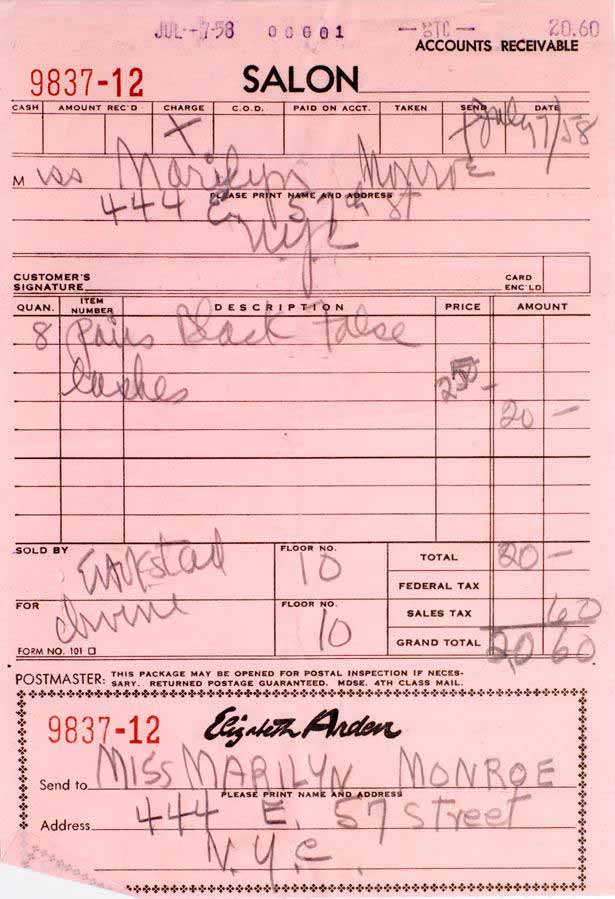 JUL -7-58 00001 — STC — 20.60
ACCOUNTS RECEIVABLE
9837-12 SALON
CASH AMOUNT REC'D CHARGE C.O.D. PAID ON ACCT. TAKEN SEND DATE
X July 7/58
Miss Marilyn Monroe
PLEASE PRINT NAME AND ADDRESS
444 E. 57th St
N.Y.C.
CUSTOMER'S SIGNATURE CARD ENC'LD
QUAN. ITEM NUMBER DESCRIPTION PRICE AMOUNT
8 pairs Black False
lashes 250
20 —
SOLD BY FLOOR NO. 10 TOTAL 20 —
FEDERAL TAX
FOR FLOOR NO. 10 SALES TAX 60
FORM NO. 101 GRAND TOTAL 20 60
POSTMASTER: THIS PACKAGE MAY BE OPENED FOR POSTAL INSPECTION IF NECES-
SARY. RETURNED POSTAGE GUARANTEED. MDSE. 4TH CLASS MAIL.
9837-12 Elizabeth Arden
Send to MISS MARILYN MONROE
PLEASE PRINT NAME AND ADDRESS
Address 444 E. 57 Street
N.Y.C.